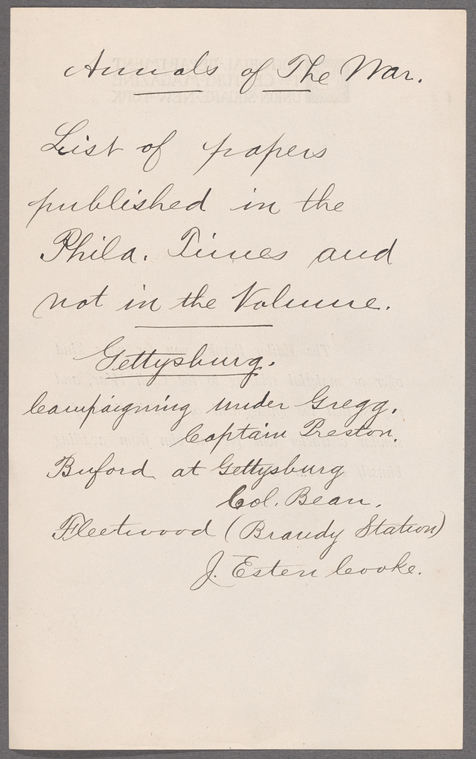 Annals of The War.
List of papers
published in the
Phila. Times and
not in the Volume.
Gettysburg.
Campaigning under Gregg.
Captain Preston.
Buford at Gettysburg
Col. Bean.
Fleetwood (Brandy Station)
J. Esten Cooke.